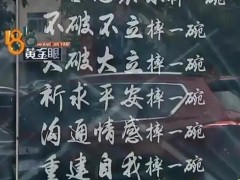 不破不立摔一碗
18
黄金眼
大破大立摔一碗
祈求平安摔一碗
沟通情感摔一碗
重建自我摔一碗